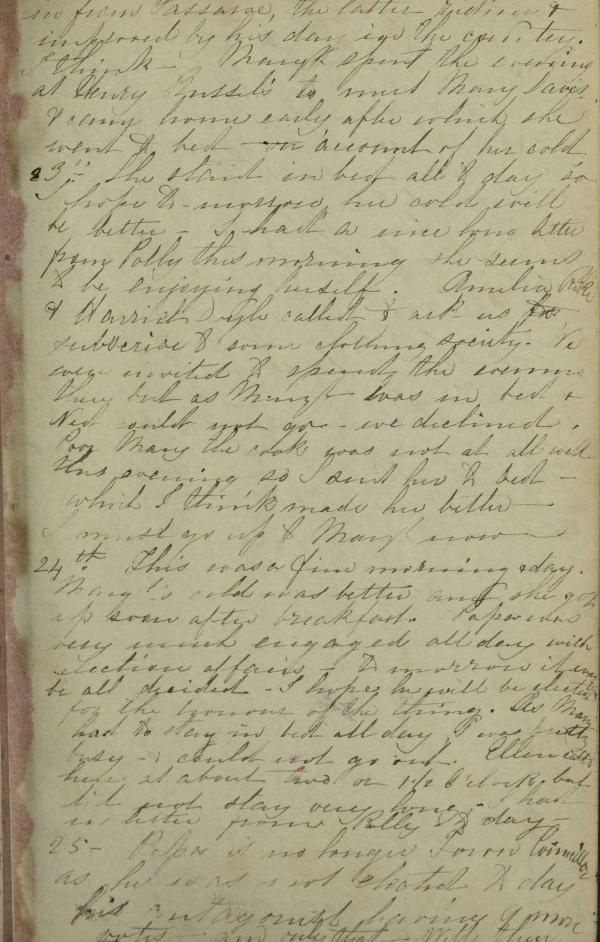 in from Passage, the latter
improved by his day in the country.
I think - Margt spent the evening
at Henry Russel's to meet Mary Davis
& came home early after which she
went to bed on account of her cold
23rd She staid in bed all to day so
I hope to-morrow her cold will
be better - I had a nice long letter
from Polly this morning she seems
to be enjoying herself. Amelia
& Harriet called to ask us to
subscribe to some clothing society. We
were invited to spend the evening
there but as Margt was in bed &
Ned could not go - we declined.
Poor Mary the cook was not at all well
this evening so I sent her to bed -
which I think made her better -
I must go up to Margt now -
24th. This was a fine morning & day.
Margt's cold was better and she got
up soon after breakfast. Papa was
very much engaged all day with
election affairs - to morrow it will
be all decided - I hope he will be elected
for the honour of the thing. As Mary
had to stay in bed all day, I was pretty
busy - & could not go out. Ellen called
here at about two or 1/2 O'clock but
did not stay very long - I had
a letter from Polly to day -
25 - Papa is no longer Town Councillor
as he was not elected to day
his antagonist having 9 more
votes - and only that -